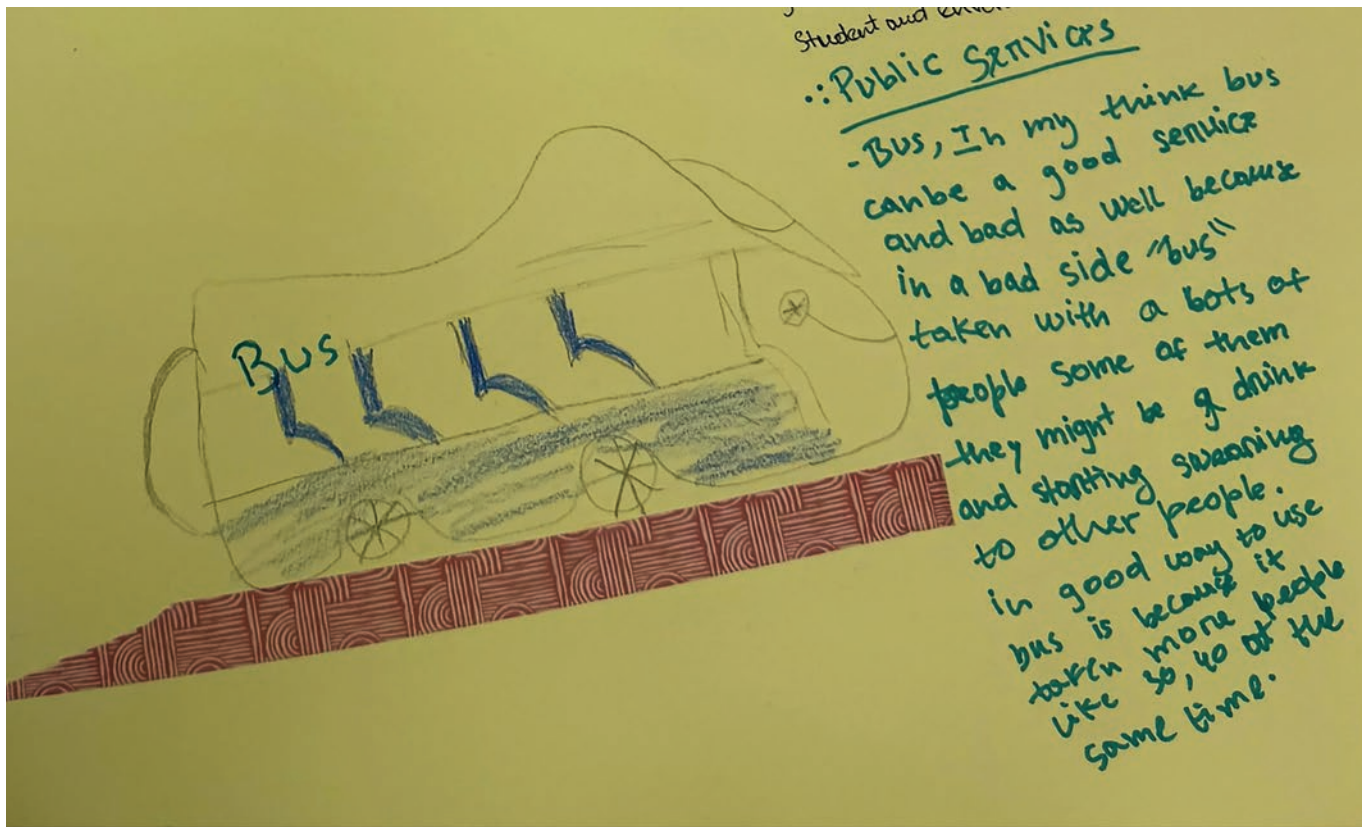 Student and
∴ Public Services
- Bus, In my think bus
canbe a good service
and bad as well because
in a bad side "bus"
taken with a lots of
people some of them
they might be drink
and starting swearing
to other people.
in good way to use
bus is because it
taken more people
like 30, 40 at the
same time.
Bus